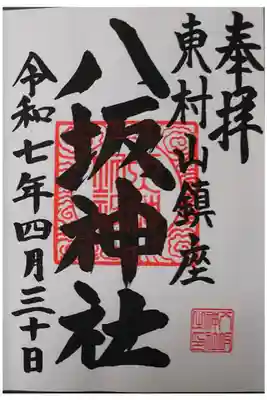 奉拝
東村山鎮座
八坂神社
令和七年四月三十日